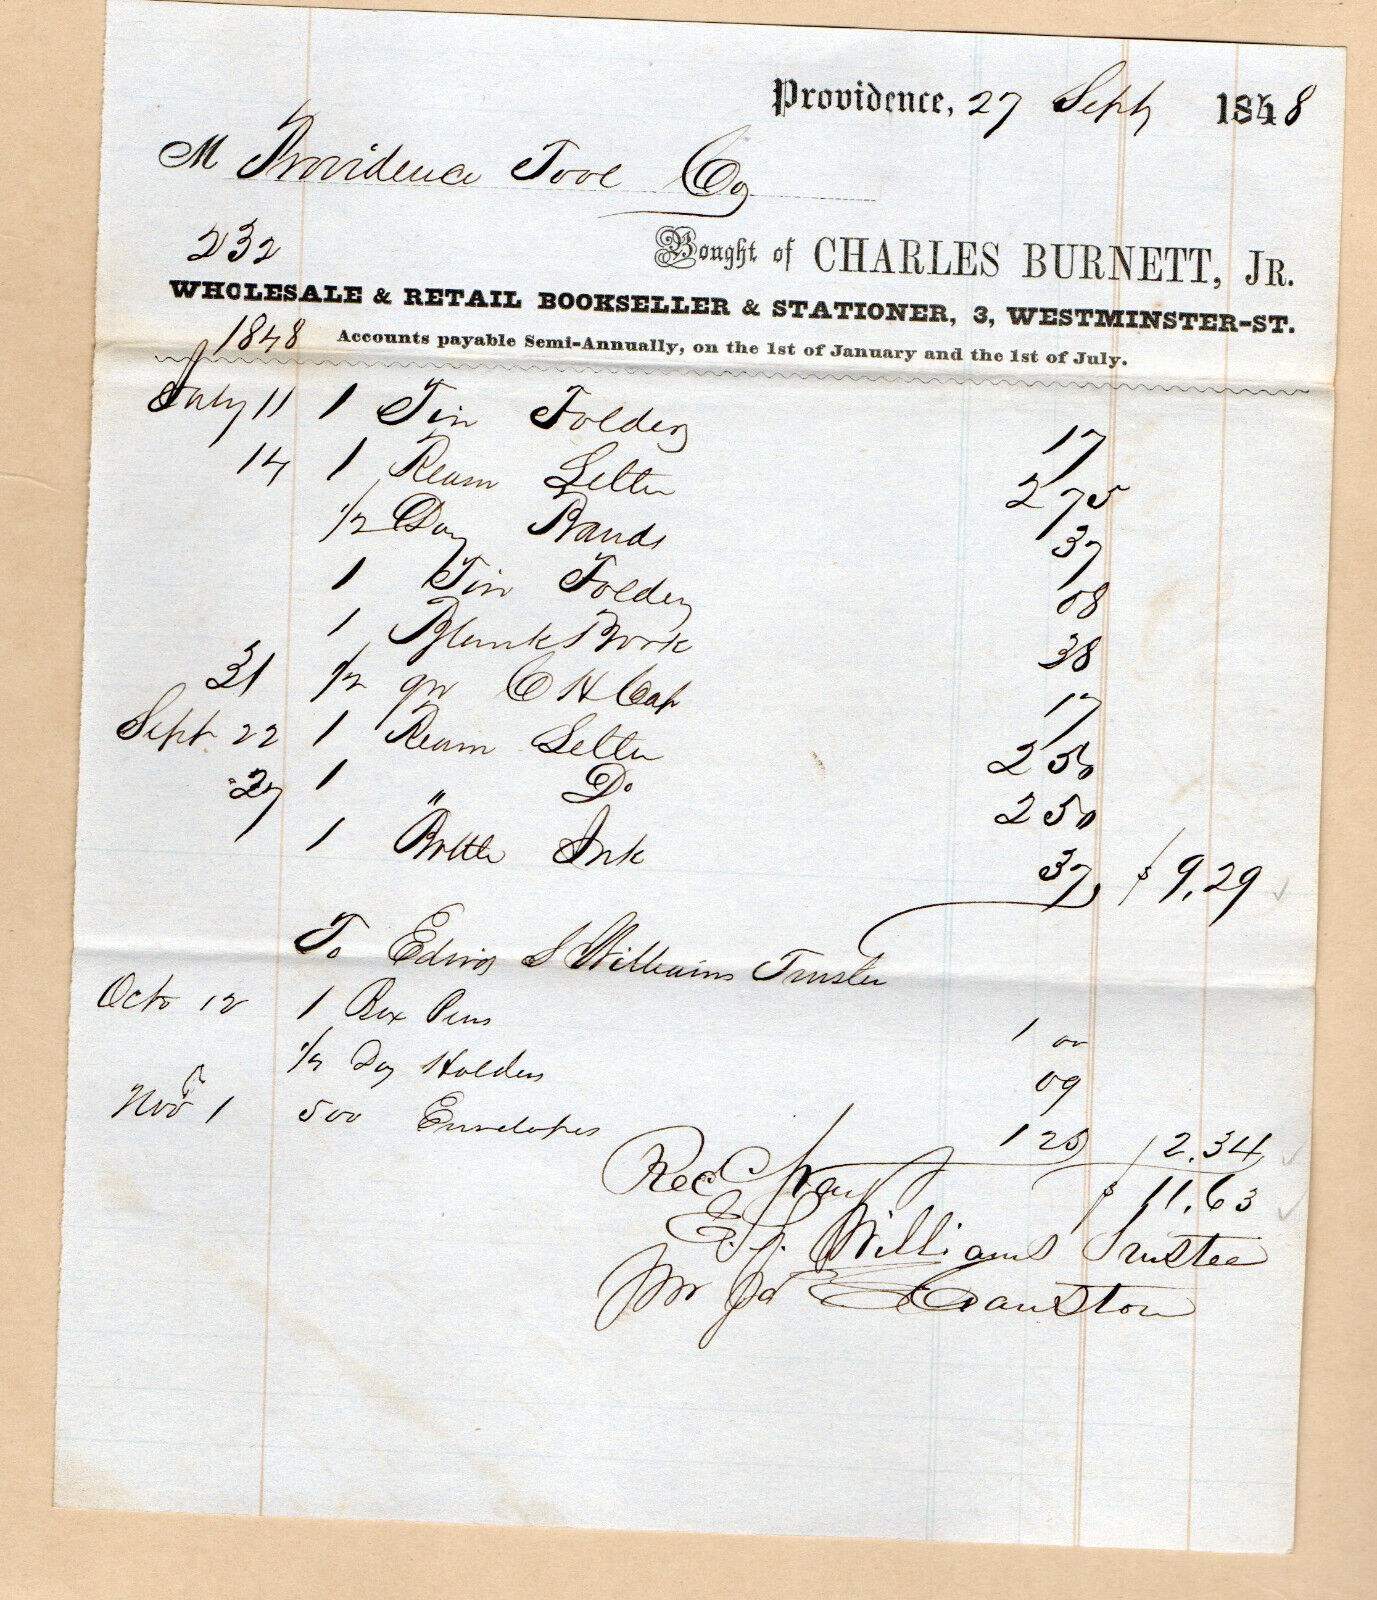 Providence, 27 Sept 1848
M Providence Tool Co
232
Bought of CHARLES BURNETT, JR.
WHOLESALE & RETAIL BOOKSELLER & STATIONER, 3, WESTMINSTER-ST.
1848 Accounts payable Semi-Annually, on the 1st of January and the 1st of July.
July 11 1 Tin Folder 17
14 1 Ream Letter 2 75
1/2 Doz Bands 37
1 Tin Folder 08
1 Blank Book 38
31 1/2 qr C H Cap 17
Sept 22 1 Ream Letter 2 50
27 1 " Do 2 50
1 Bottle Ink 37 $ 9.29
To Edwin S Williams Trustee
Octo 12 1 Box Pens 1 00
1/2 Doz Holders 09
Nov 1 500 Envelopes 1 25 2.34
Rec Pay $ 11.63
E. S. Williams Trustee
Cranston